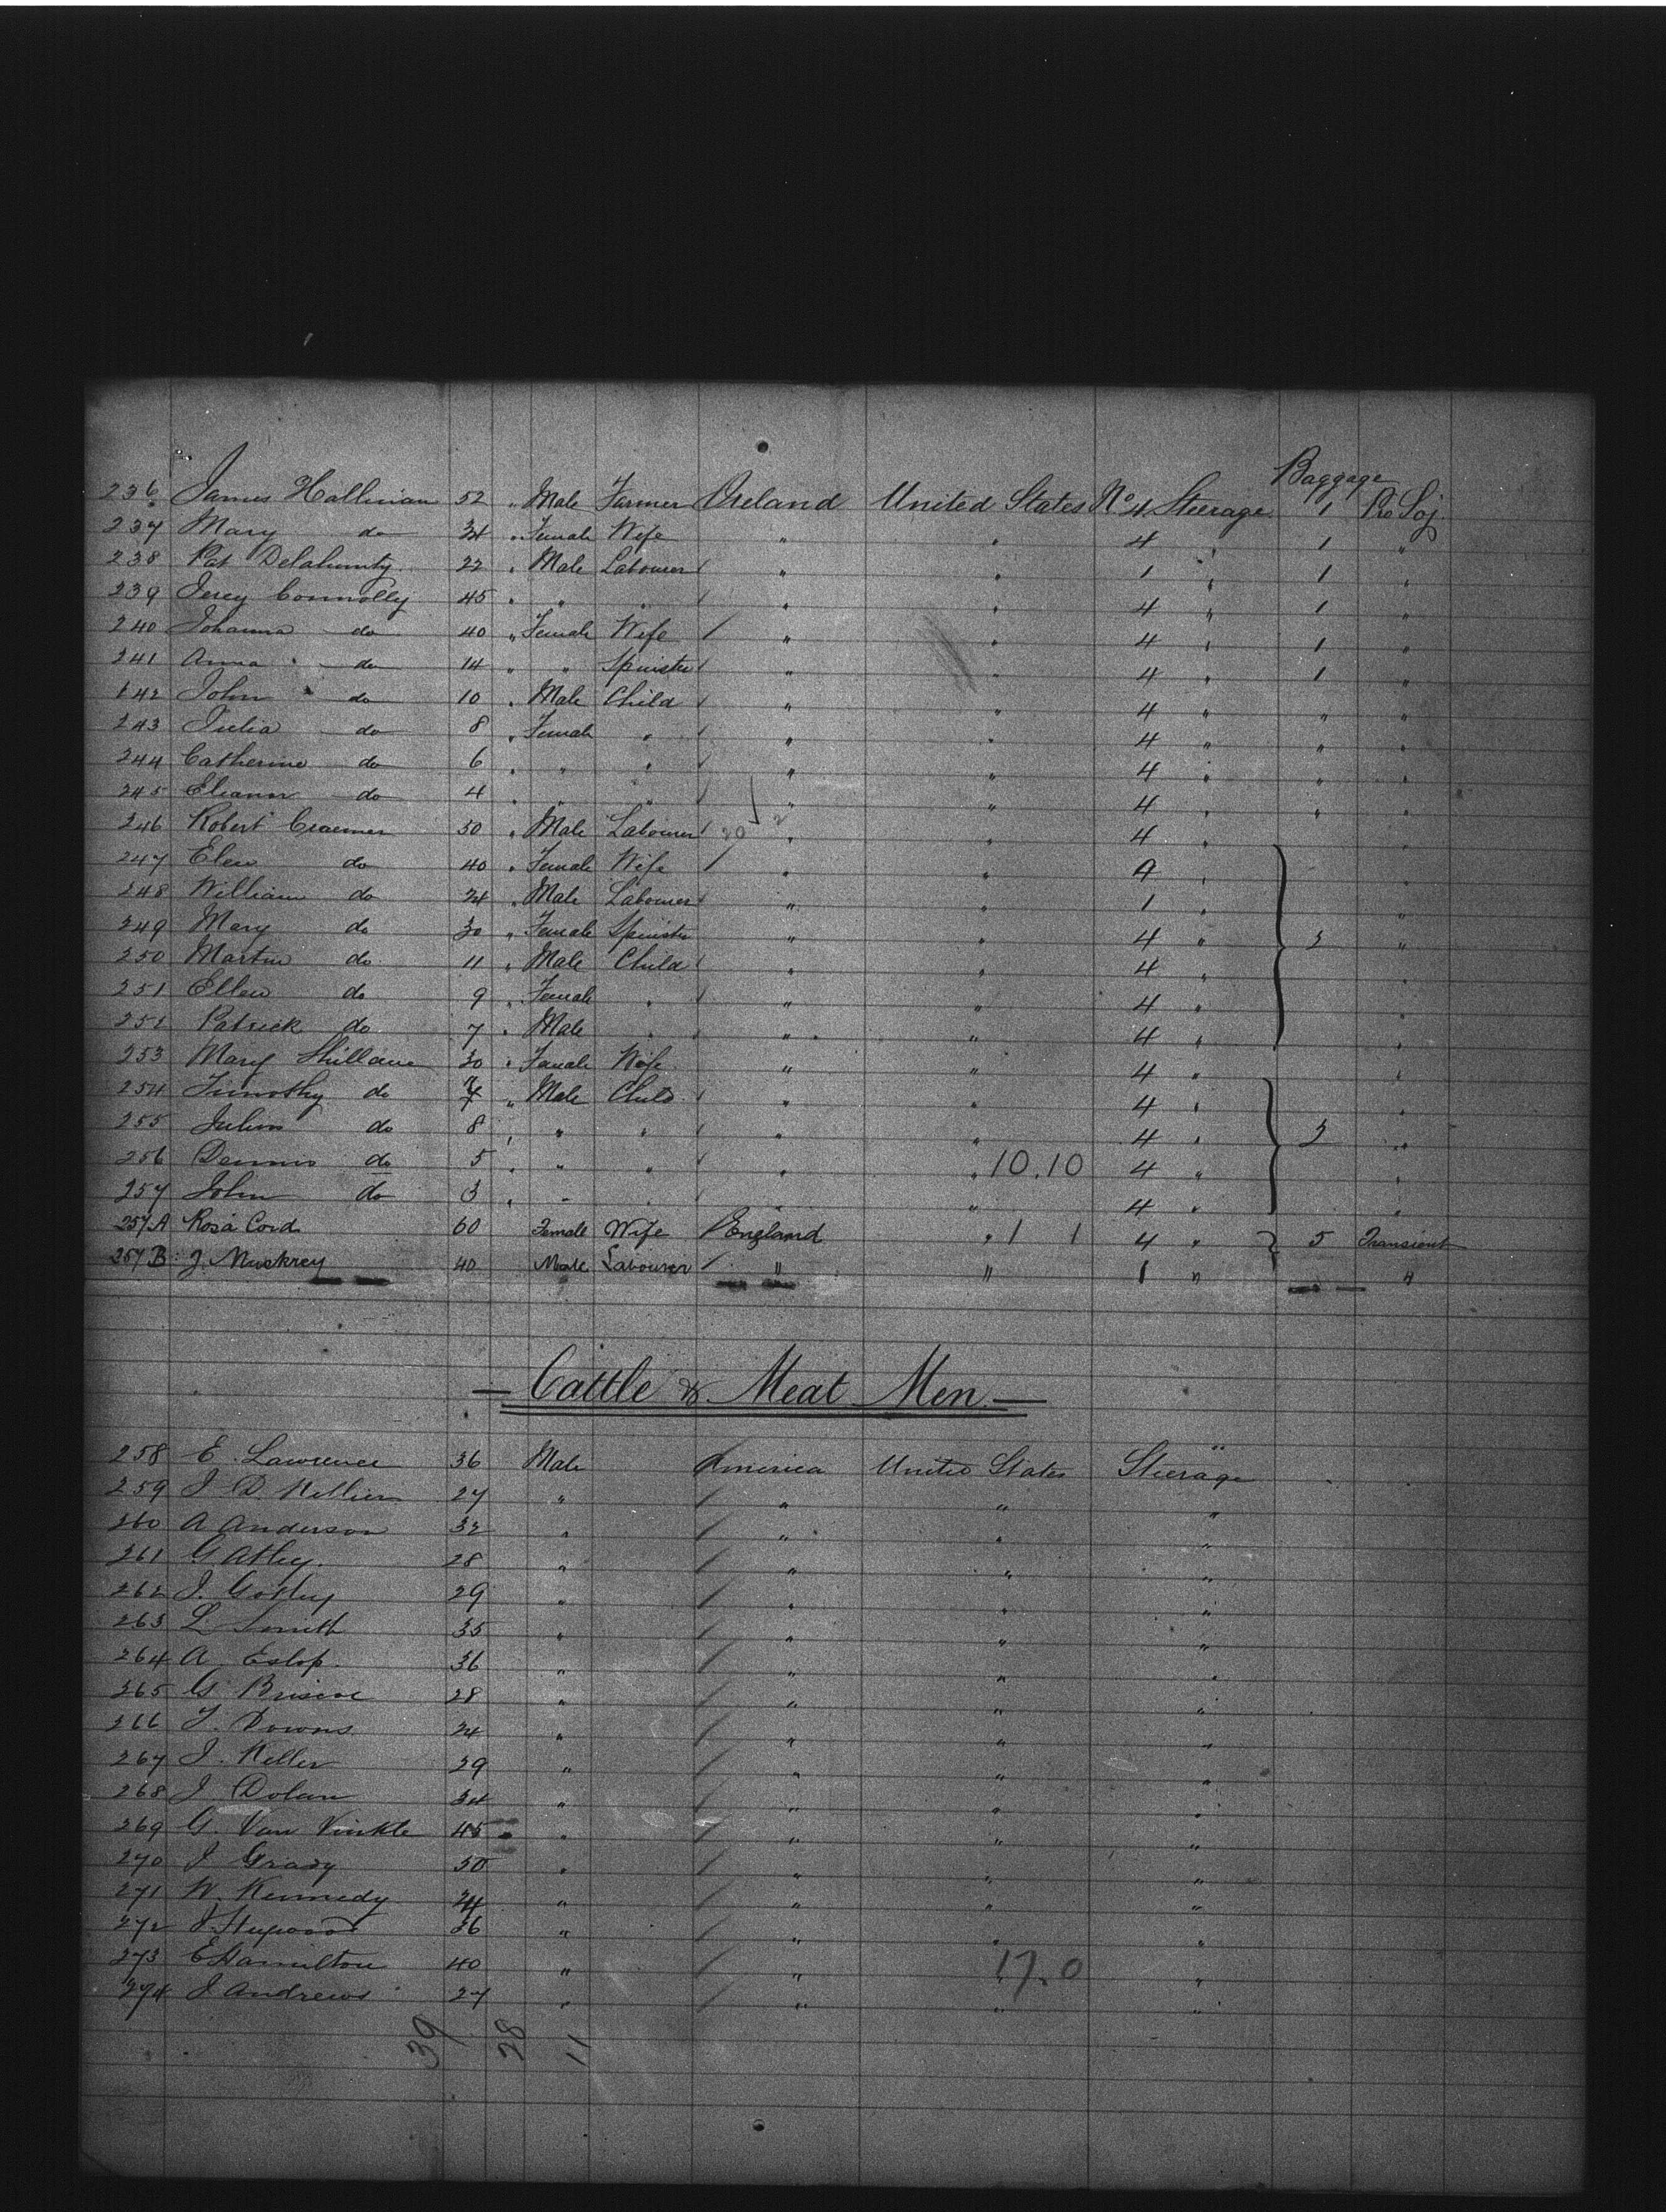 Baggage
236 James Hallinan 52 " Male Farmer Ireland United States No 4 Steerage 1 Pro Soj.
237 Mary do 34 " Female Wife " " 4 " 1 "
238 Pat Delahunty 22 " Male Labourer " " 1 " 1 "
239 Jerey Connolly 45 " " " " " 4 " 1 "
240 Johanna do 40 " Female Wife " " 4 " 1 "
241 Anna do 14 " " Spinster " " 4 " 1 "
242 John do 10 " Male Child " " 4 " " "
243 Julia do 8 " Female " " " 4 " " "
244 Catherine do 6 " " " " " 4 " " "
245 Eleanor do 4 " " " " " 4 " " "
246 Robert 50 " Male Labourer 20 2 " " 4 " "
247 Ellen do 40 " Female Wife " " 4 " "
248 William do 24 " Male Labourer " " 1 " "
249 Mary do 30 " Female Spinster " " 4 " 3 "
250 Martin do 11 " Male Child " " 4 " "
251 Ellen do 9 " Female " " " 4 " "
252 Patrick do 7 " Male " " " 4 " "
253 Mary 30 " Female Wife " " 4 " "
254 Timothy do " Male Child " " 4 " "
255 do 8 " " " " " 4 " 3 "
256 Dennis do 5 " " " " " 10.10 4 " "
257 John do 3 " " " " " 4 " "
257A Rosa Cord 60 Female Wife England " 1 1 4 " 5 Transient
257B J. Muskrey 40 Male Labourer " " 1 " "
Cattle & Meat Men
258 E. Lawrence 36 Male America United States Steerage
259 J. D. 27 " " " "
260 A Anderson 32 " " " "
261 G 28 " " " "
262 J. 29 " " " "
263 L Smith 35 " " " "
264 A. Eslop 36 " " " "
265 G. Briscoe 28 " " " "
266 T. Downs 24 " " " "
267 J. Keller 29 " " " "
268 J. Dolan 34 " " " "
269 G. Van Vinkle 45 " " " "
270 J Grady 50 " " " "
271 W. Kennedy 24 " " " "
272 J. 36 " " " "
273 E Hamilton 40 " " " 17.0 "
274 J Andrews 27 " " " "
39 28 11